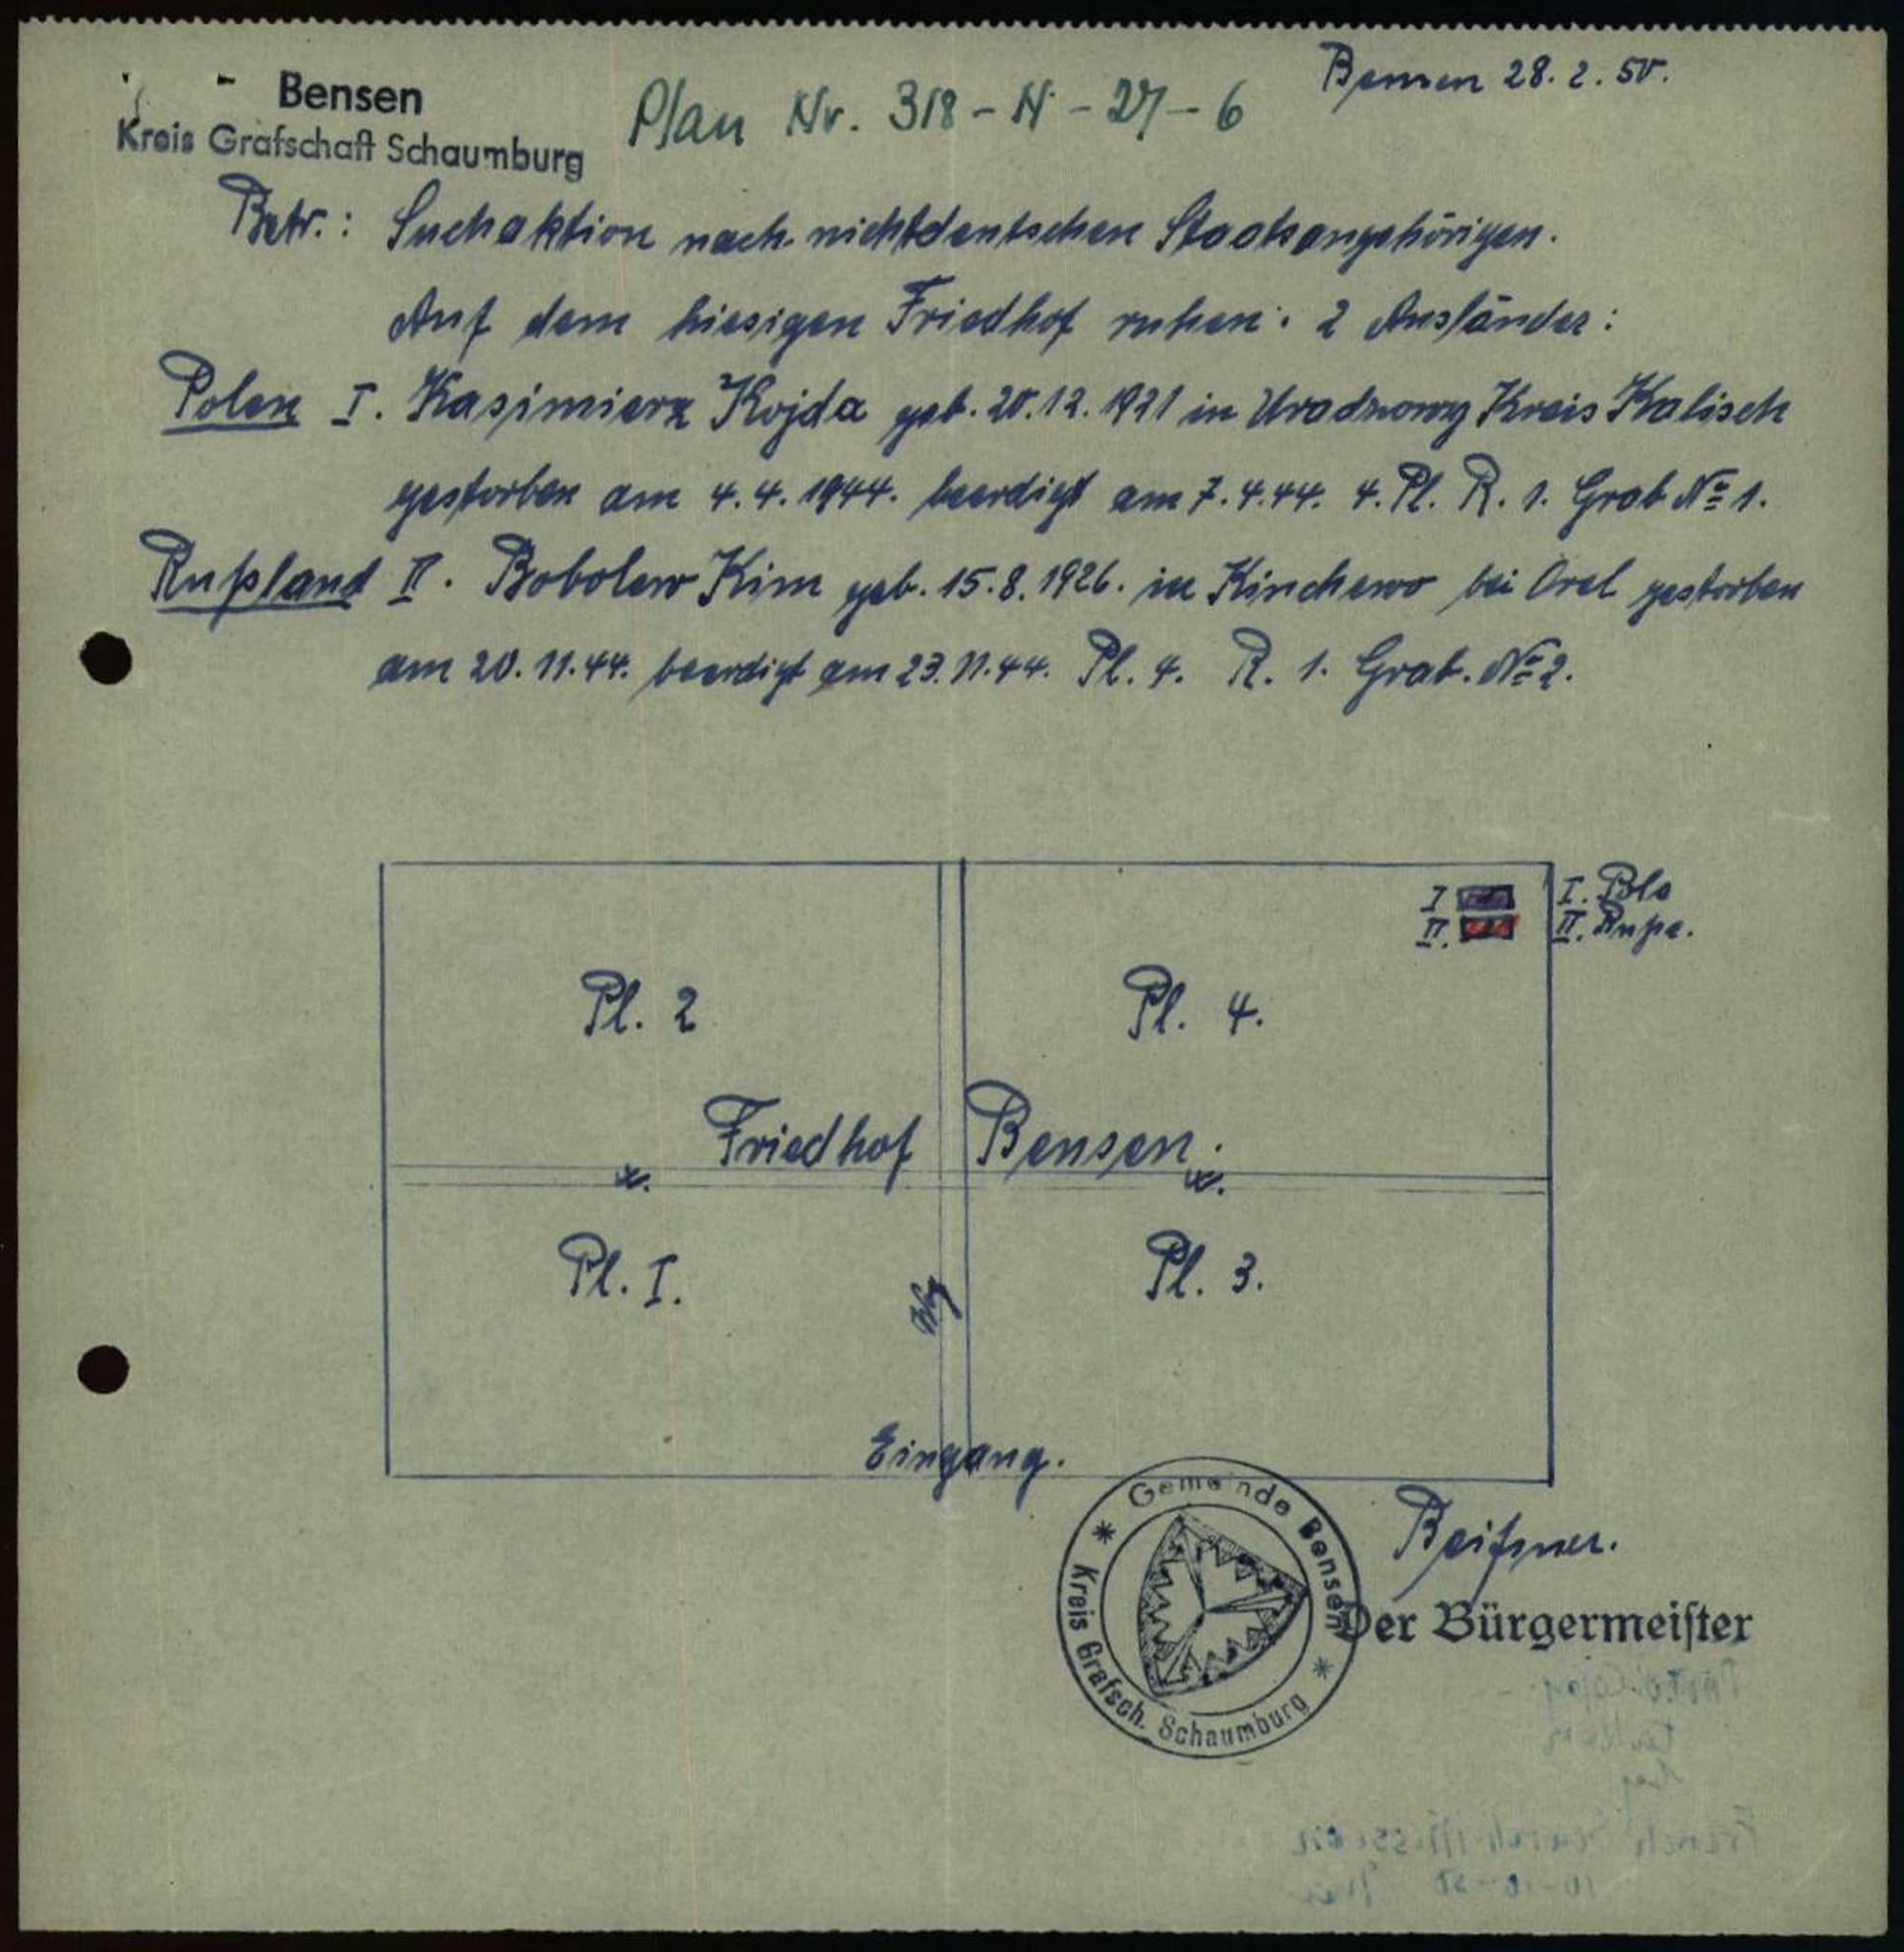 Bensen
Kreis Grafschaft Schaumburg
Plan Nr. 318-N-27-6
Bensen 28.2.50.
Betr.: Suchaktion nach nichtdeutschen Staatsangehörigen.
Auf dem hiesigen Friedhof ruhen: 2 Ausländer:
Polen I. Kasimierz Kojda geb. 20.12.1921 in Kreis Kalisch
gestorben am 4.4.1944. beerdigt am 7.4.44. 4. Pl. R. 1. Grab № 1.
Rußland II. Bobolew Kim geb. 15.8.1926. in Kinchewo bei Orel gestorben
am 20.11.44. beerdigt am 23.11.44. Pl. 4. R. 1. Grab. № 2.
I
I. Pole
II.
II. Russe.
Pl. 2
Pl. 4.
Friedhof Bensen.
w.
w.
Pl. I.
Pl. 3.
Weg
Eingang.
Gemeinde Bensen
Kreis Grafsch. Schaumburg
Der Bürgermeister